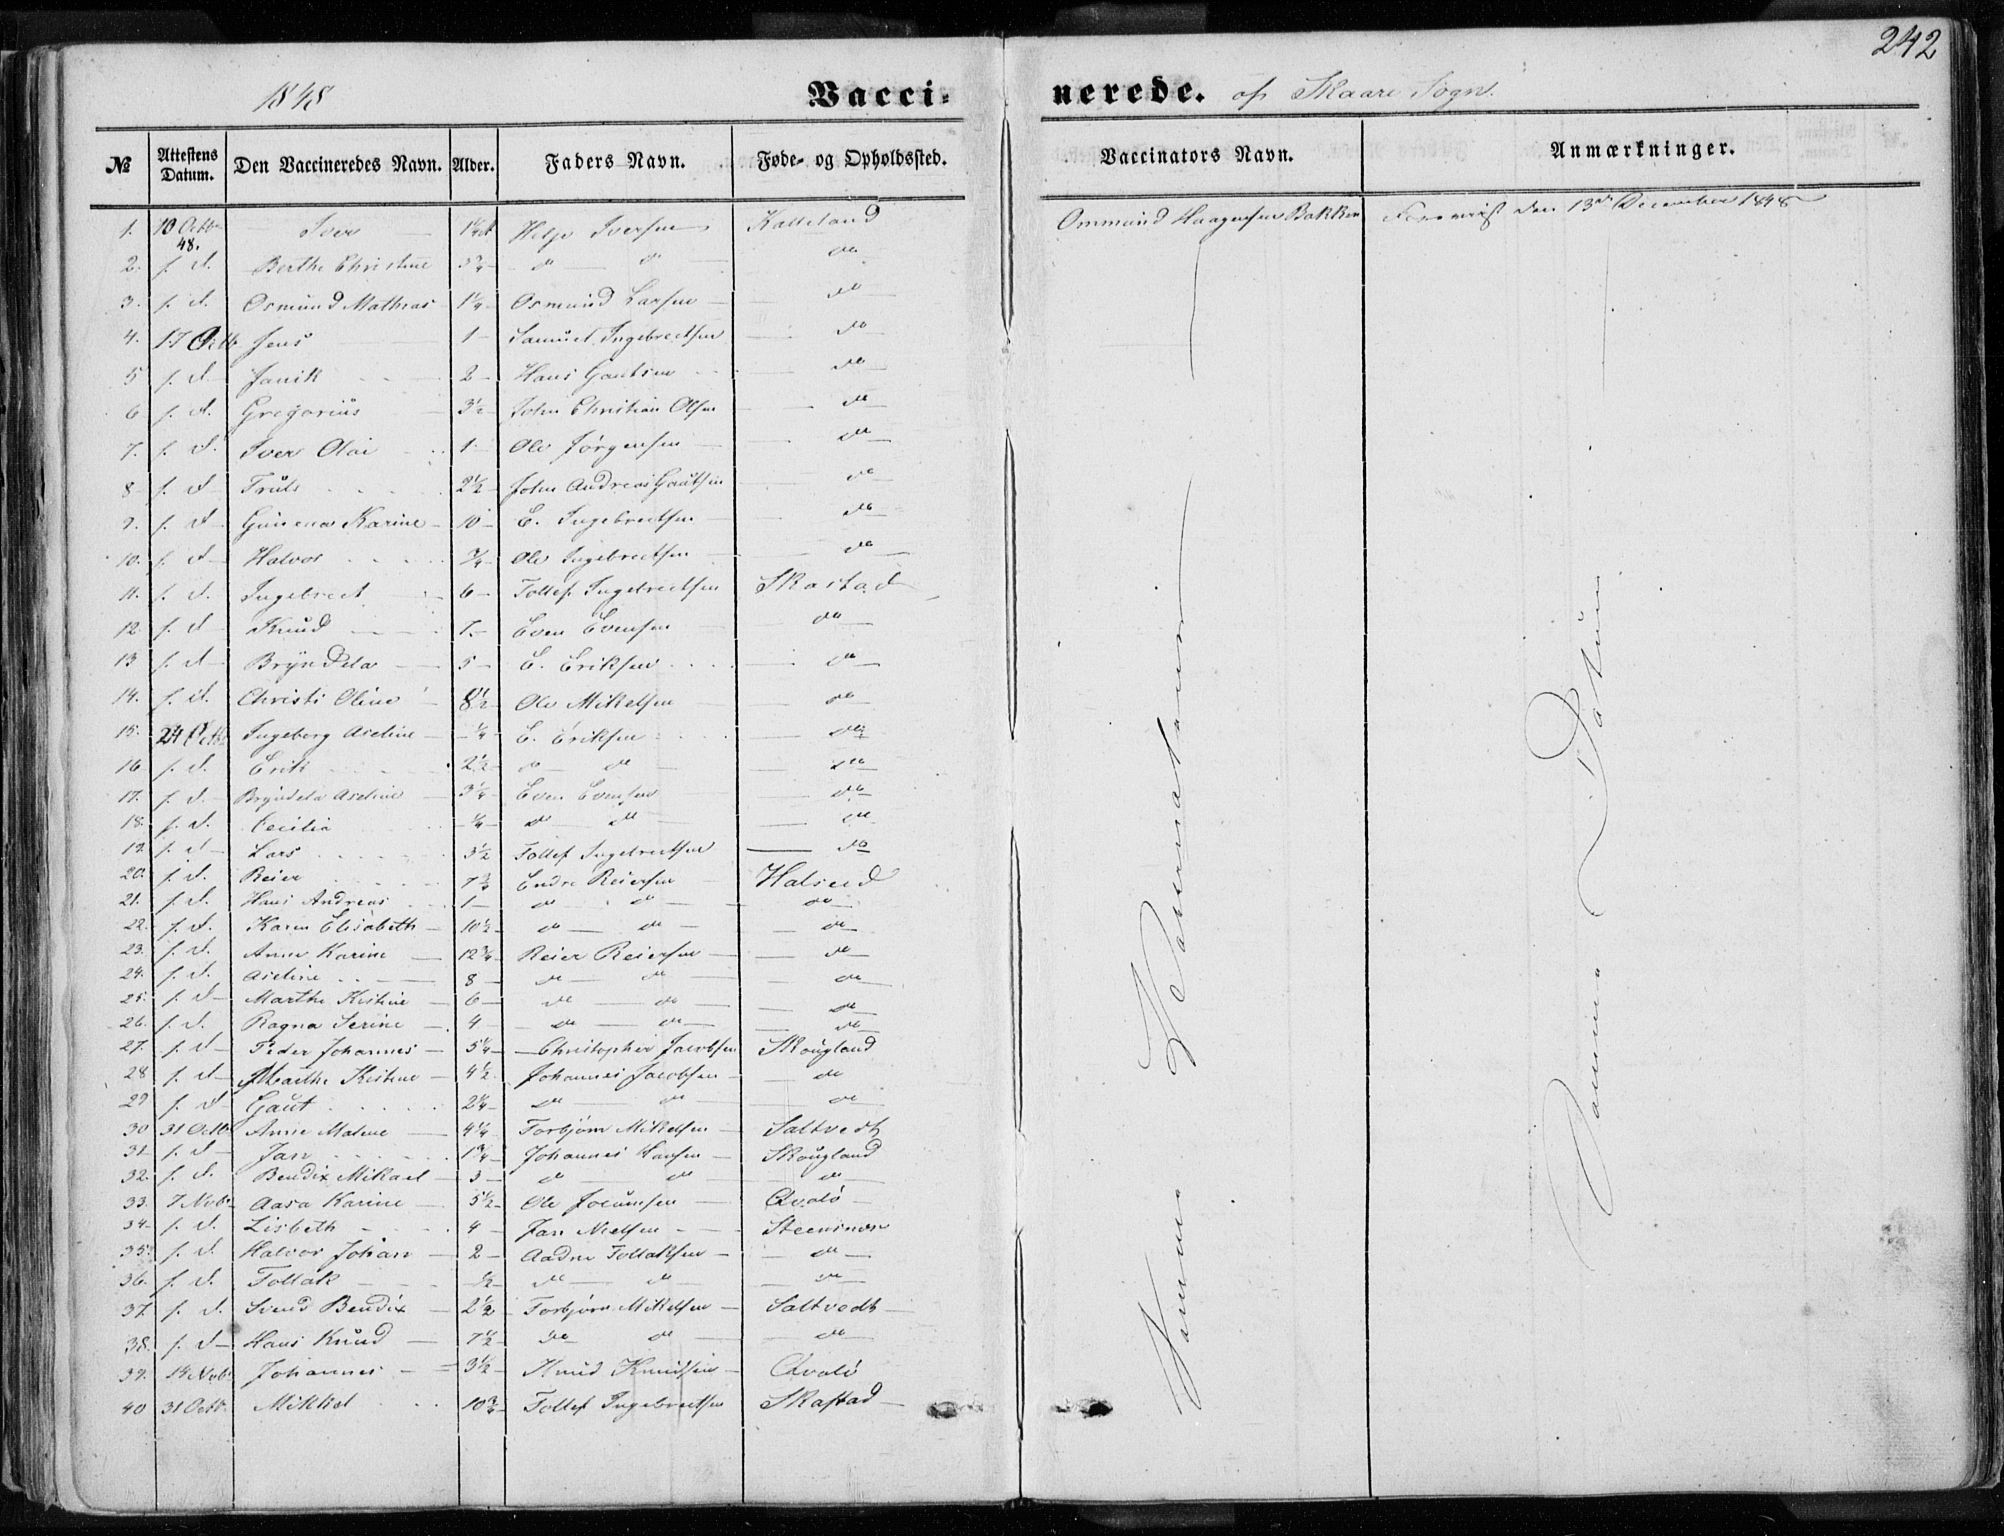 242
1848 Vaccinerede. af Skaare Sogn.
№ Attestens Datum. Den Vaccineredes Navn. Alder. Faders Navn. Føde- og Opholdssted. Vaccinators Navn. Anmærkninger.
1. 10 Octbr 48. Iver 1¼ Helje Iversen Kalleland Ommund Haagensen Bakken Foreviist den 13de December 1848
2. s. d. Berthe Christine 3¾ do do do
3. s. d. Osmund Mathias 1¼ Osmund Larsen do
4. 17 Octb Jens 1 Samuel Ingebrectsen do
5 s. d. Janik 2 Hans Gautsen do
6 s. d. Gregorius 3½ John Christian Olsen do
7. s. d. Iver Olai 1 Ole Jørgensen do
8 s. d Truls 2½ John Andreas Gautsen do
9. s. d Gunena Karine 10 E. Ingebrectsen do
10. s. d Halvor ¾ Ole Ingebrectsen do
11. s. d. Ingebrect 6 Tollef Ingebrectsen Skastad
12. s. d Knud 7. Even Evensen do
13 s. d Bryndela 5 E. Eriksen do
14. s. d. Christi Oline 8½ Ole Mikelsen do
15. 24 Octb Ingeborg Aseline ¼ E. Eriksen do
16 s. d. Erik 2½ do do do
17. s. d. Bryndela Aseline 3¼ Even Evensen do
18. s. d. Cecilia ¼ do do do
19. s. d Lars 3½ Tollef Ingebrectsen do
20. s. d. Reier 7¾ Endre Reiersen Halseid
21. s. d. Hans Andreas 1 do do do
22. s. d. Karen Elisabeth 10½ do do do
23. s. d. Anne Karine 12¾ Reier Reiersen do
24. s. d. Aseline 8 do do do
25. s. d Marthe Kistine 6 do do do
26. s. d. Ragna Serine 4 do do do
27. s. d Peder Johannes 5¼ Christopher Jacobsen Skougland
28 s. d Marthe Kistine 4½ Johannes Jacobsen do
29 s. d Gaut 2¼ do do do
30 31 Octb Anne Malene 4¼ Torbjørn Mikelsen Saltvedt
31 s. d Jan 1¾ Johannes Hansen Skougland
32. s. d. Bendix Mikael 3 do do do
33. 7 Novb. Aasa Karine 5½ Ole Joeumsen Qvalø
34. s. d. Lisbeth 4 Jan Nielsen Steensnæs
35. s. d. Halvor Johan 2 Aadne Tollaksen do
36. s. d. Tollak ½ do do do
37. s. d. Svend Bendix 2½ Torbjørn Mikelsen Saltvedt
38. s. d Hans Knud 7½ do do do
39. 14 Novb. Johannes 3½ Knud Knudsen Qvalø
40 31 Octb. Mikkel 10¾ Tollef Ingebrectsen Skastad
Samme Vaccinateur
Samme Datum